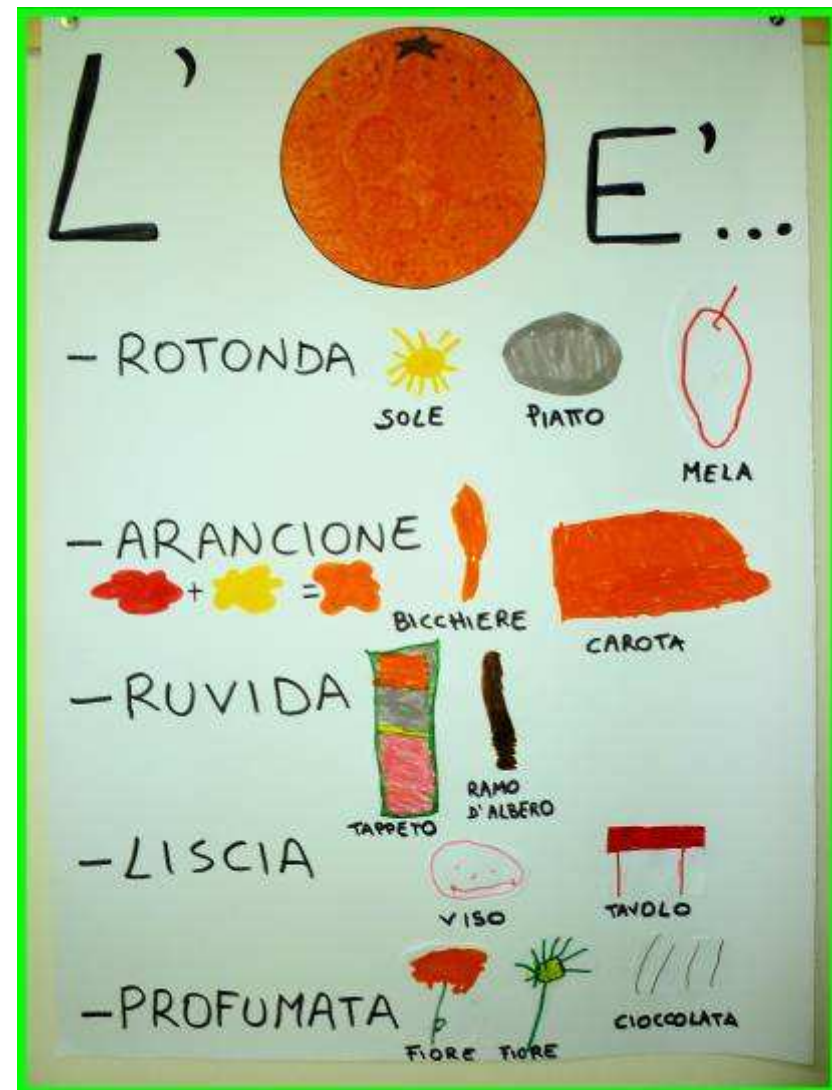 L' E'...
- ROTONDA
SOLE PIATTO MELA
- ARANCIONE
+ =
BICCHIERE CAROTA
- RUVIDA
TAPPETO RAMO
D'ALBERO
- LISCIA
VISO TAVOLO
- PROFUMATA
FIORE FIORE CIOCCOLATA